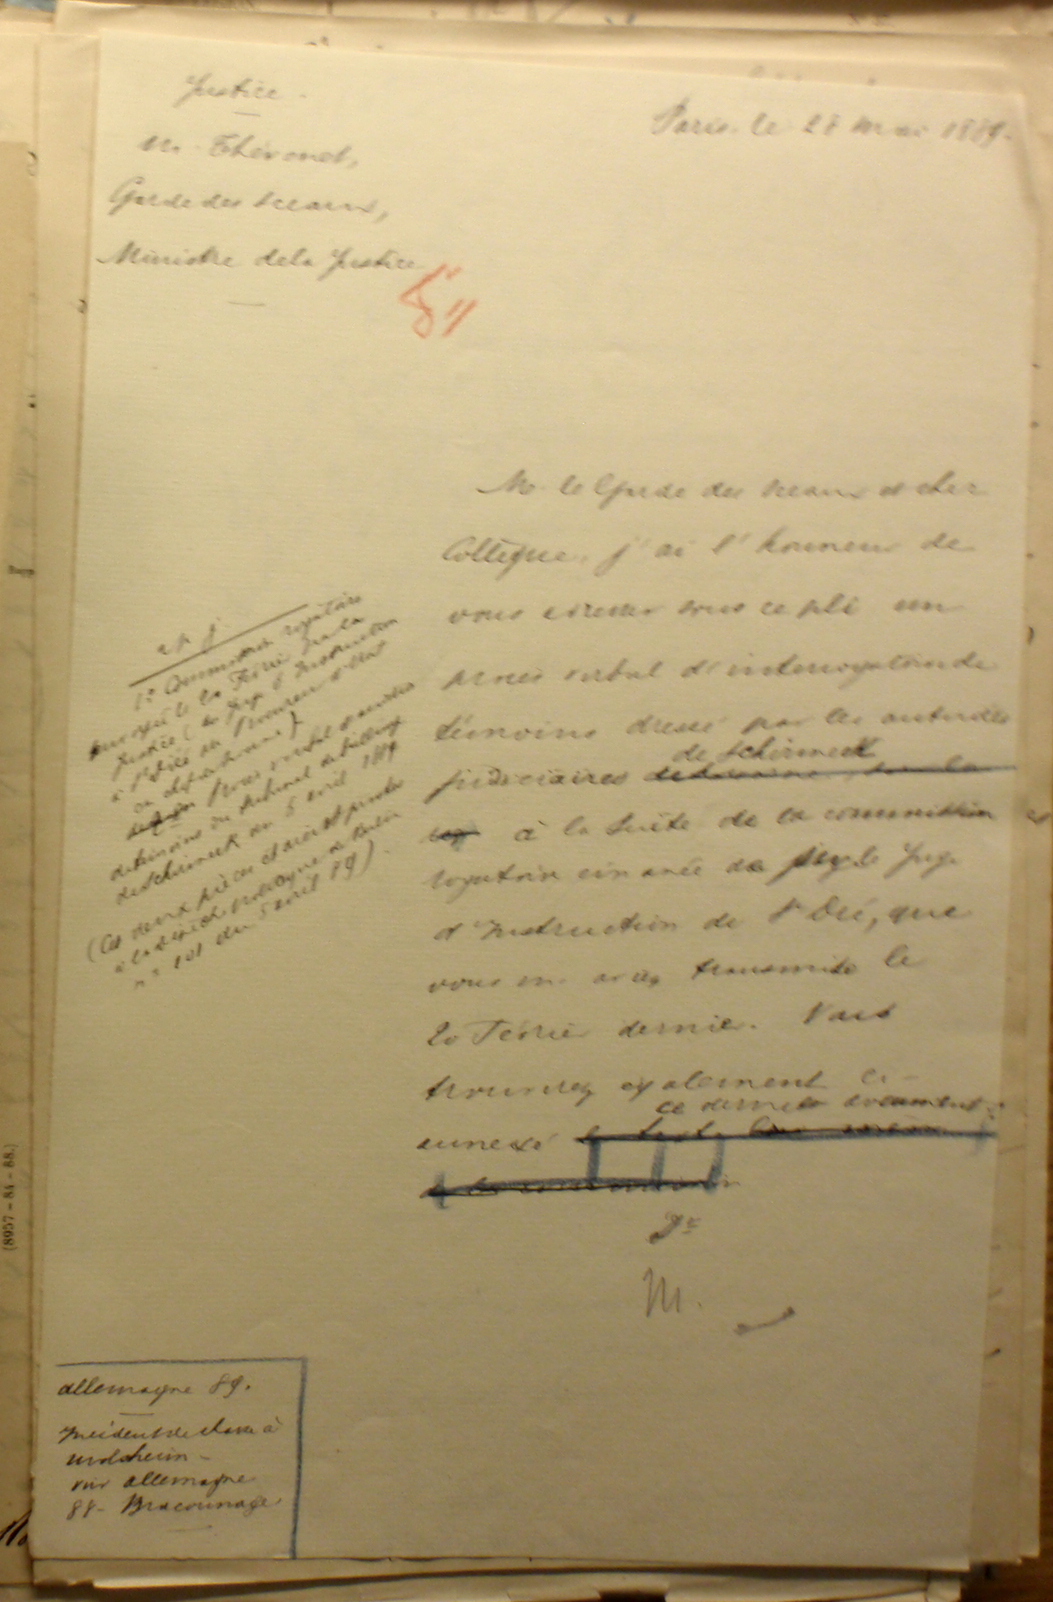 Justice.
Paris, le 28 mai 1889.
M. Thévenet,
Garde des Sceaux,
Ministre de la Justice
M. le Garde des Sceaux et cher
Collègue, j'ai l'honneur de
vous adresser sous ce pli un
procès verbal d'interrogatoire de
témoins dressé par les autorités
de Schirmeck
judiciaires
à la suite de la commission
rogatoire émanée de le Juge
d'Instruction de St Dié, que
vous m'avez transmise le
20 Février dernier. Vous
trouverez également ci-
ce dernier document.
annexé
M.
1° Commission rogatoire
envoyée le 20 Février par la
Justice (du Juge d'Instruction
procès verbal d'audition
de témoins du tribunal de bailliage
de Schirmeck du 5 avril 1889
(Ces deux pièces étaient jointes
à la dépêche de Berlin
n° 101 du 5 avril 89).
(8957-84-88.)
Allemagne 89.
Incident de chasse à
Molsheim -
voir Allemagne
88 - Braconnage